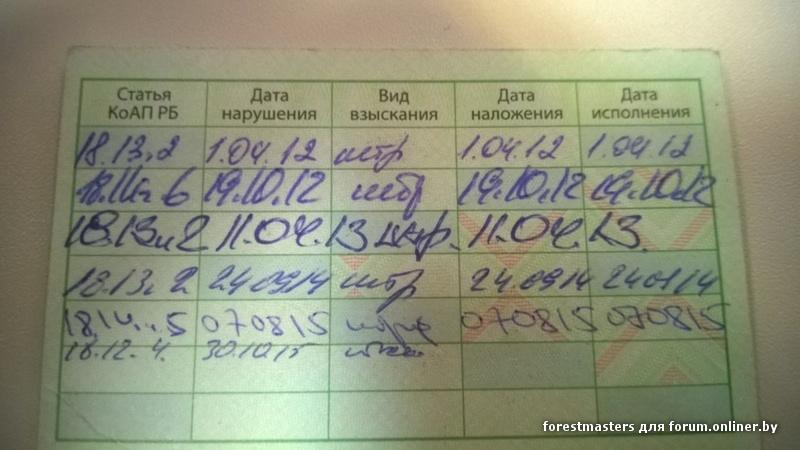 Статья КоАП РБ Дата нарушения Вид взыскания Дата наложения Дата исполнения
18.13ч2 1.04.12 штр 1.04.12 1.04.12
18.11ч 6 19.10.12 штр 19.10.12 19.10.12
18.13ч2 11.04.13 штр. 11.04.13.
18.13ч 2 240914 штр 240914
18.14 ч5 070815 070815 070815
18.12. 4. 30.10.15
forestmasters для forum.onliner.by